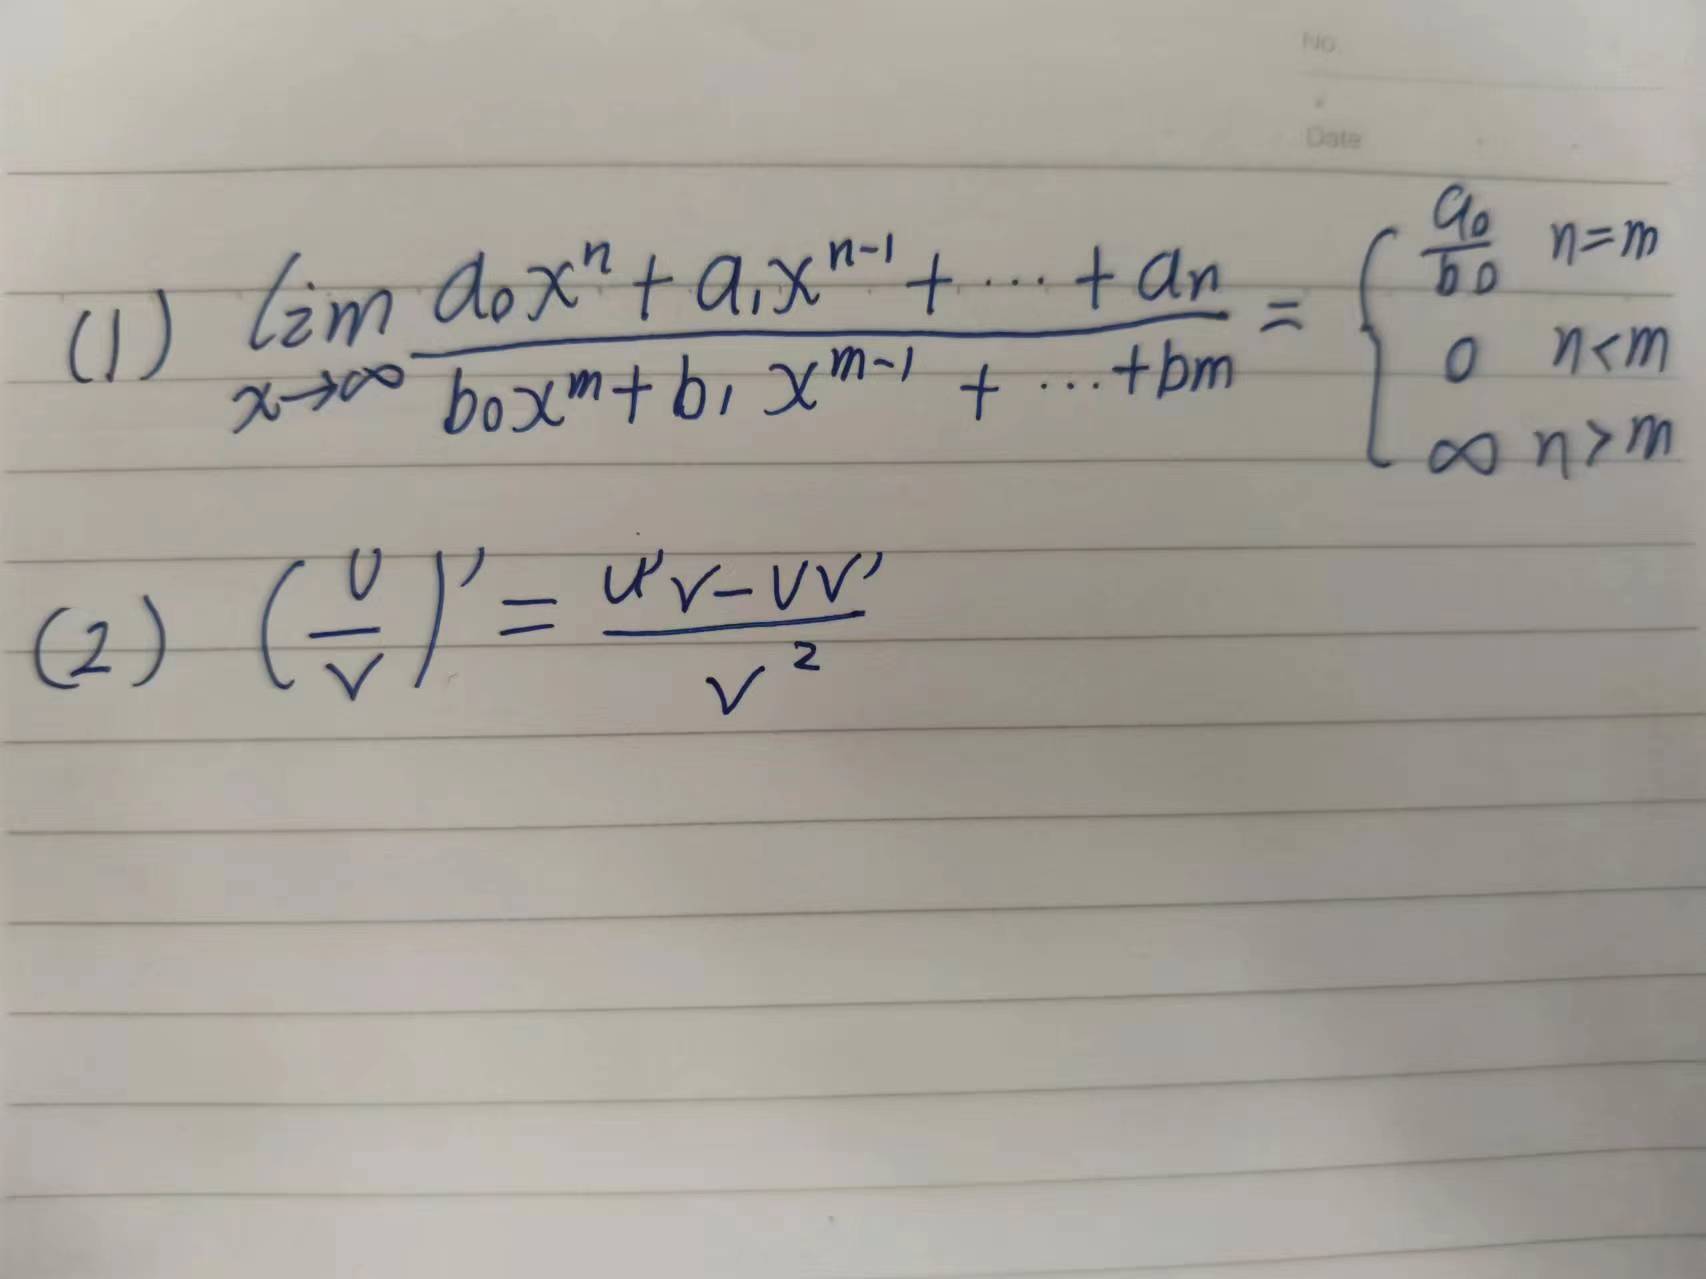 No.
Date
(1) lim x→∞ (a₀xⁿ + a₁xⁿ⁻¹ + ⋯ + aₙ)/(b₀xᵐ + b₁xᵐ⁻¹ + ⋯ + bₘ) = { a₀/b₀ n=m
0 n<m
∞ n>m
(2) (u/v)′ = (u′v − uv′)/v²